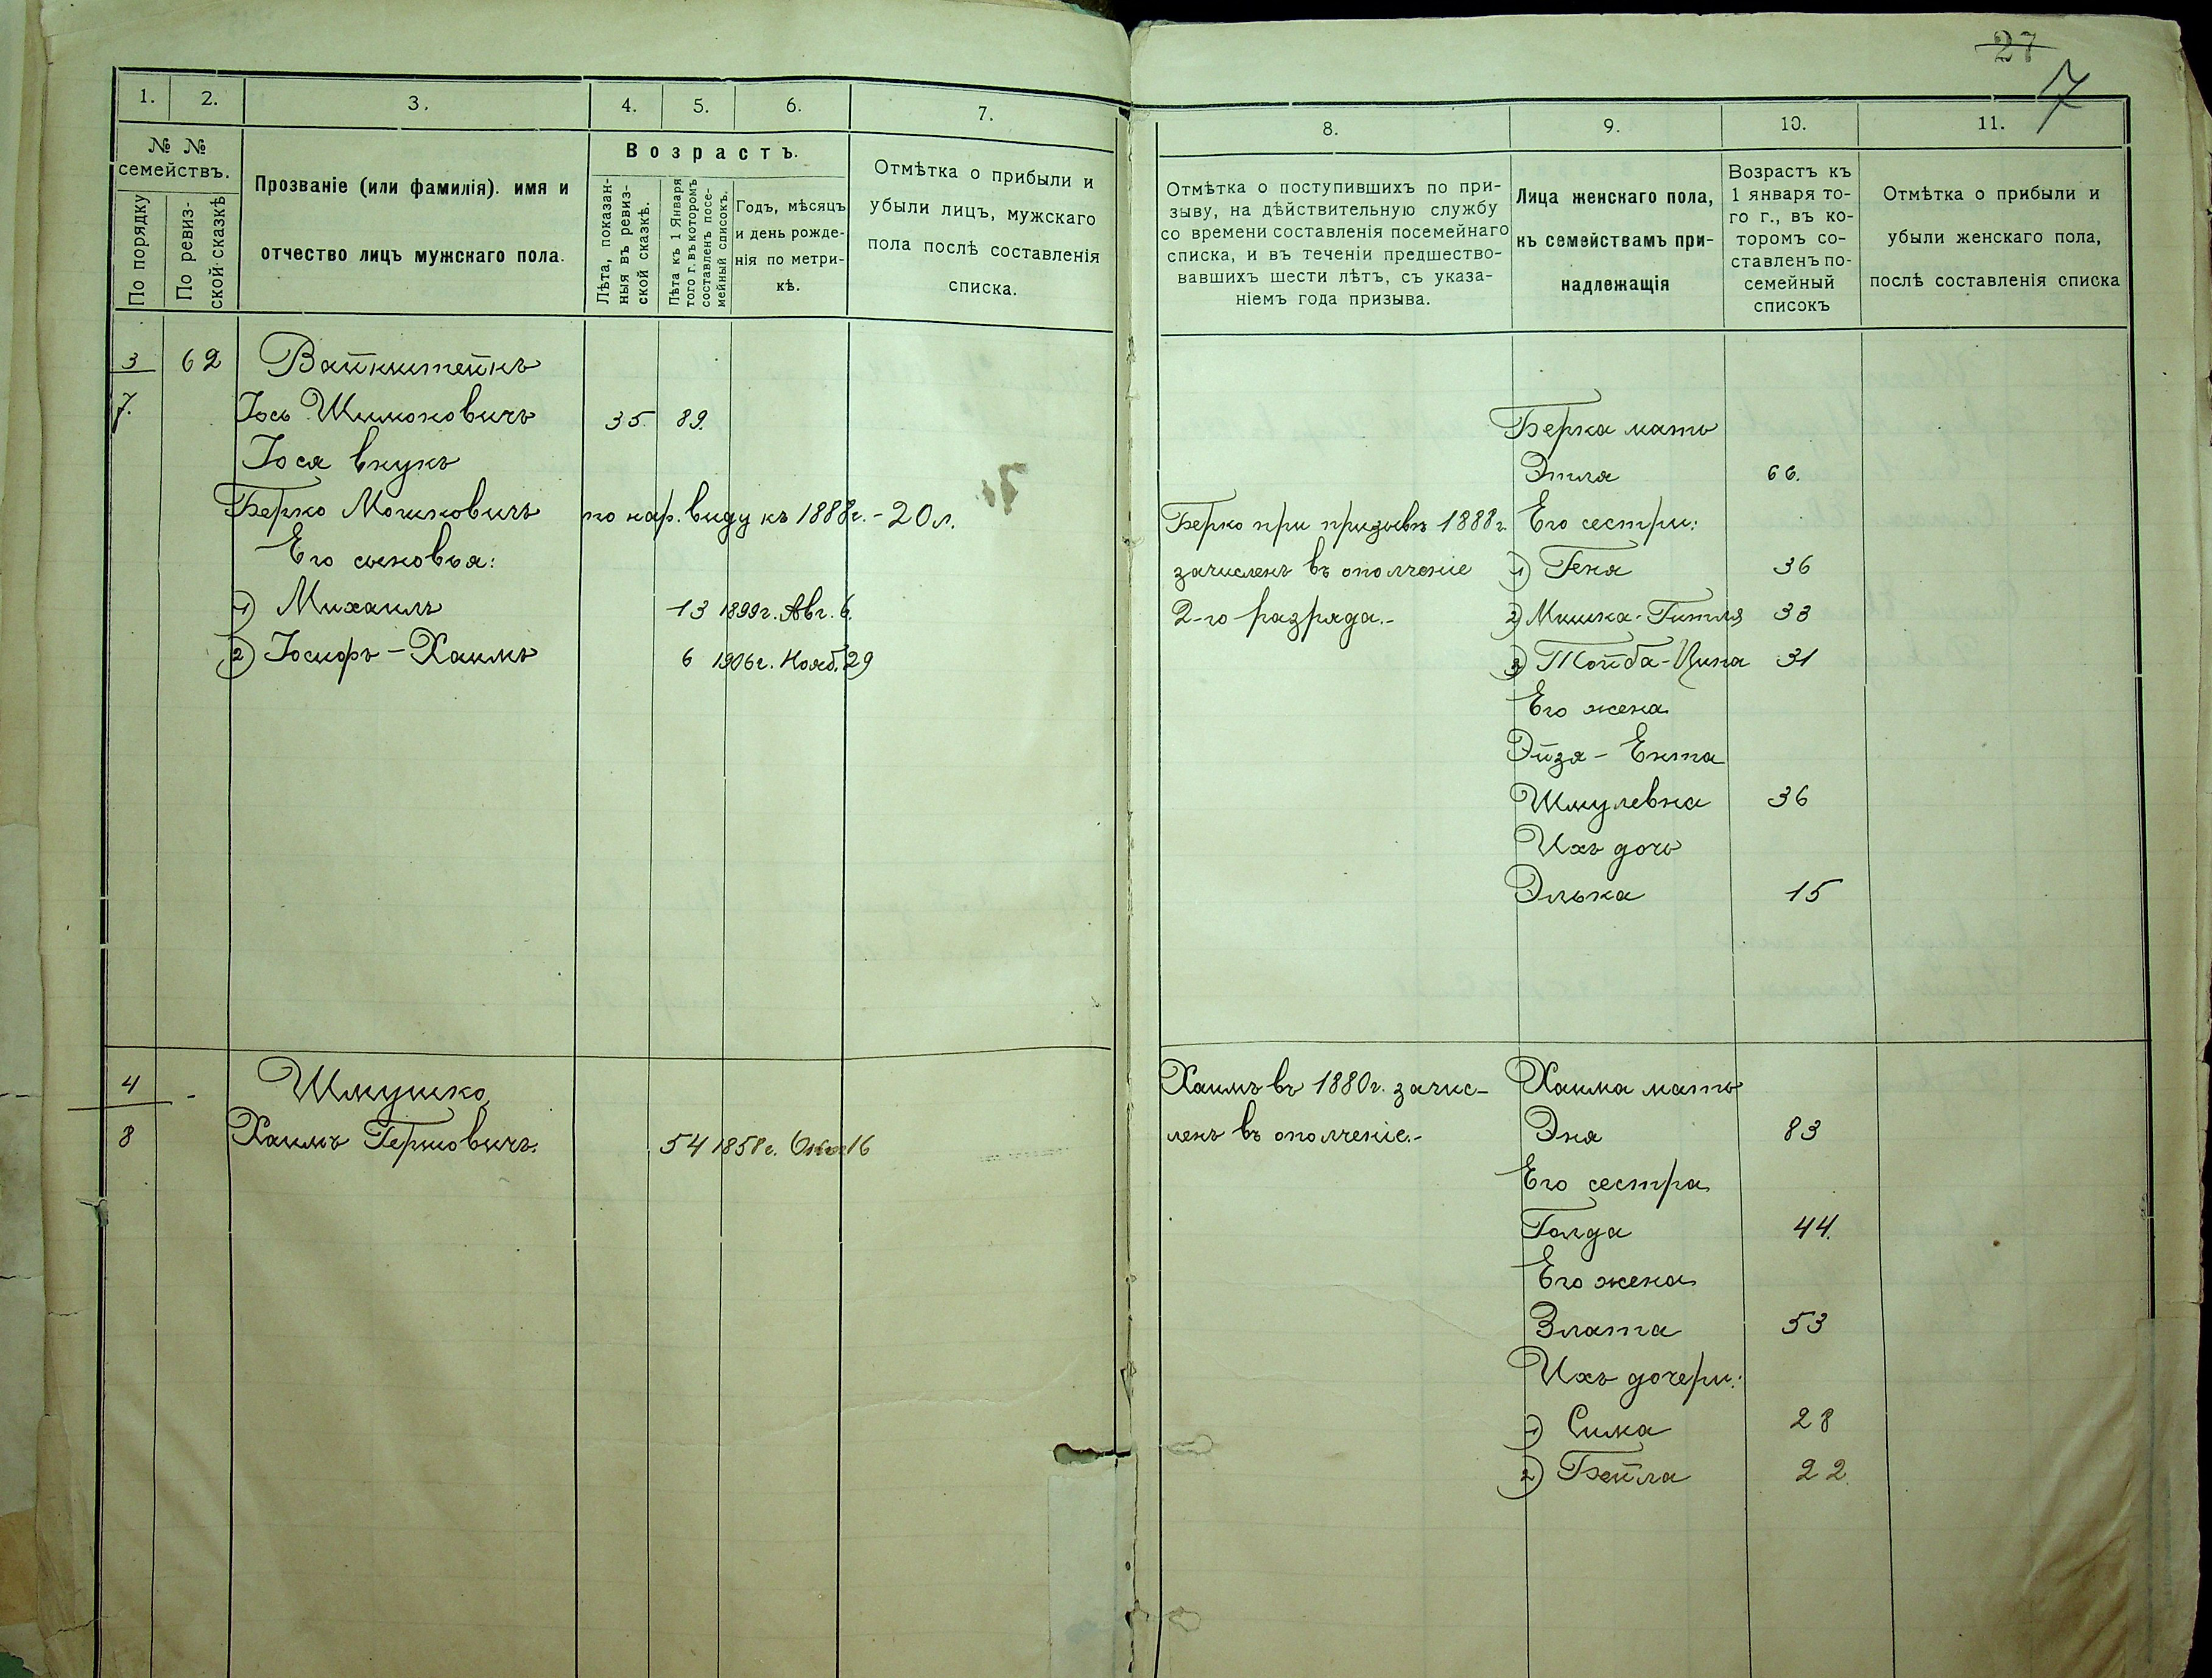 27
7
1.
2.
3.
4.
5.
6.
7.
№ №
семействъ.
По порядку
По ревиз-
ской сказкѣ
Прозваніе (или фамилія). имя и
отчество лицъ мужскаго пола.
Возрастъ.
Лѣта, показан-
ныя въ ревиз-
ской сказкѣ.
Лѣта къ 1 Января
того г. въ которомъ
составленъ посе-
мейный списокъ.
Годъ, мѣсяцъ
и день рожде-
нія по метри-
кѣ.
Отмѣтка о прибыли и
убыли лицъ, мужскаго
пола послѣ составленія
списка.
3 62 Вайнштейнъ
7. Іось Шимоновичъ 35. 89.
Іося внукъ
Берко Мошковичъ по нар. виду къ 1888г. - 20 л.
Его сыновья:
1) Михаилъ 13 1899г. Авг. 6.
2) Іосифъ - Хаимъ 6 1906г. Нояб. 29
4 - Шмушко
8 Хаимъ Гершовичъ. 54 1858г. Окт 16
8.
9.
10.
11.
Отмѣтка о поступившихъ по при-
зыву, на дѣйствительную службу
со времени составленія посемейнаго
списка, и въ теченіи предшество-
вавшихъ шести лѣтъ, съ указа-
ніемъ года призыва.
Лица женскаго пола,
къ семействамъ при-
надлежащія
Возрастъ къ
1 января то-
го г., въ ко-
торомъ со-
ставленъ по-
семейный
списокъ
Отмѣтка о прибыли и
убыли женскаго пола,
послѣ составленія списка
Берка мать
Этля 66.
Берко при призывѣ 1888г. Его сестры:
зачисленъ въ ополченіе 1) Геня 36
2-го разряда.- 2) Мишка-Гитля 33
3) Тойба-Цина 31
Его жена
Эйзя - Ента
Шмулевна 36
Ихъ дочь
Элька 15
Хаимъ въ 1880г. зачис- Хаима мать
ленъ въ ополченіе.- Эня 83
Его сестра
Голда 44.
Его жена
Злата 53
Ихъ дочери:
1) Сима 28
2) Бейла 22